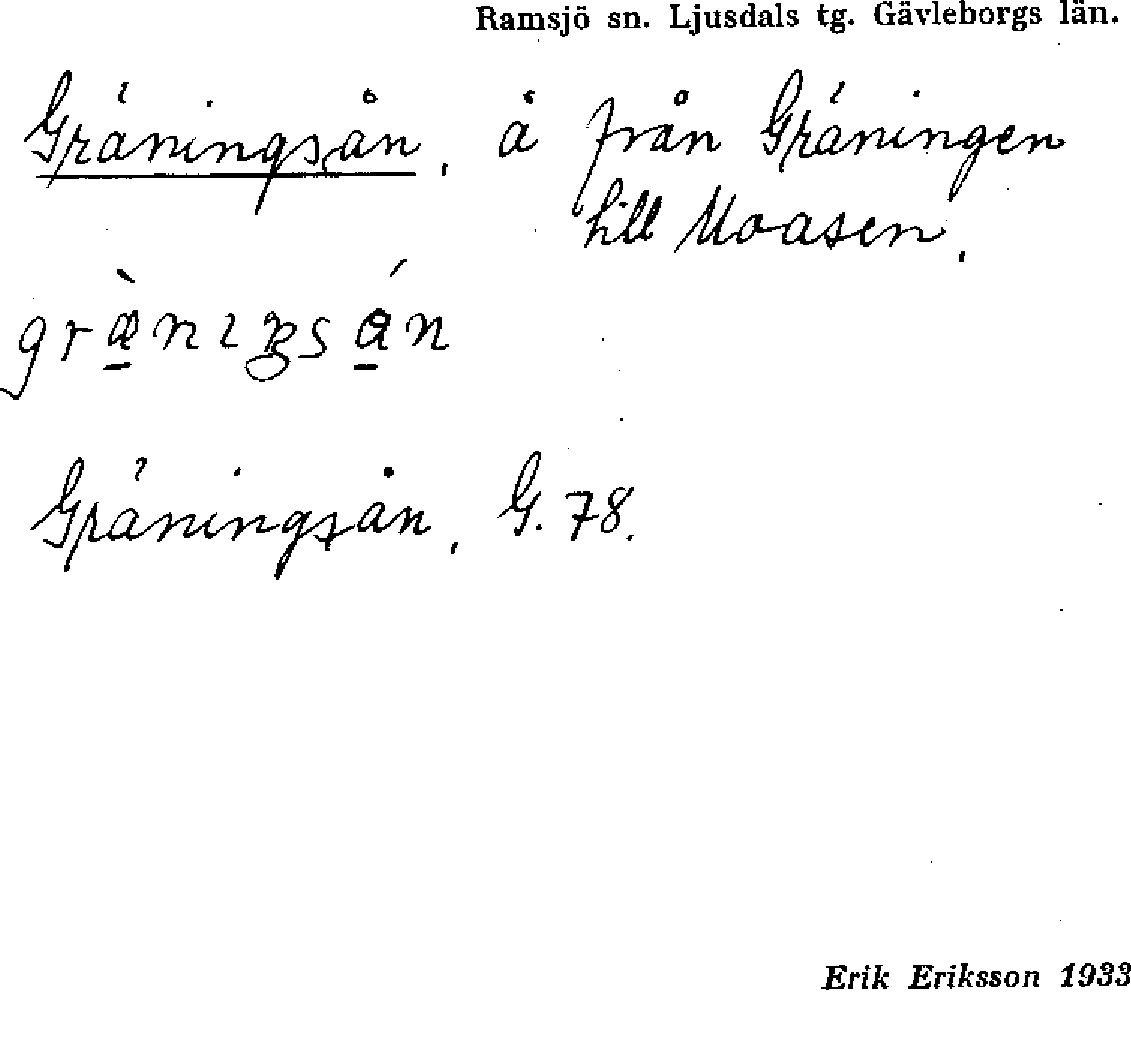 Ramsjö sn. Ljusdals tg. Gävleborgs län.
Gräningsån, å från Gräningen
till Moasen.
Gräningsån, G. 78.
Erik Eriksson 1933